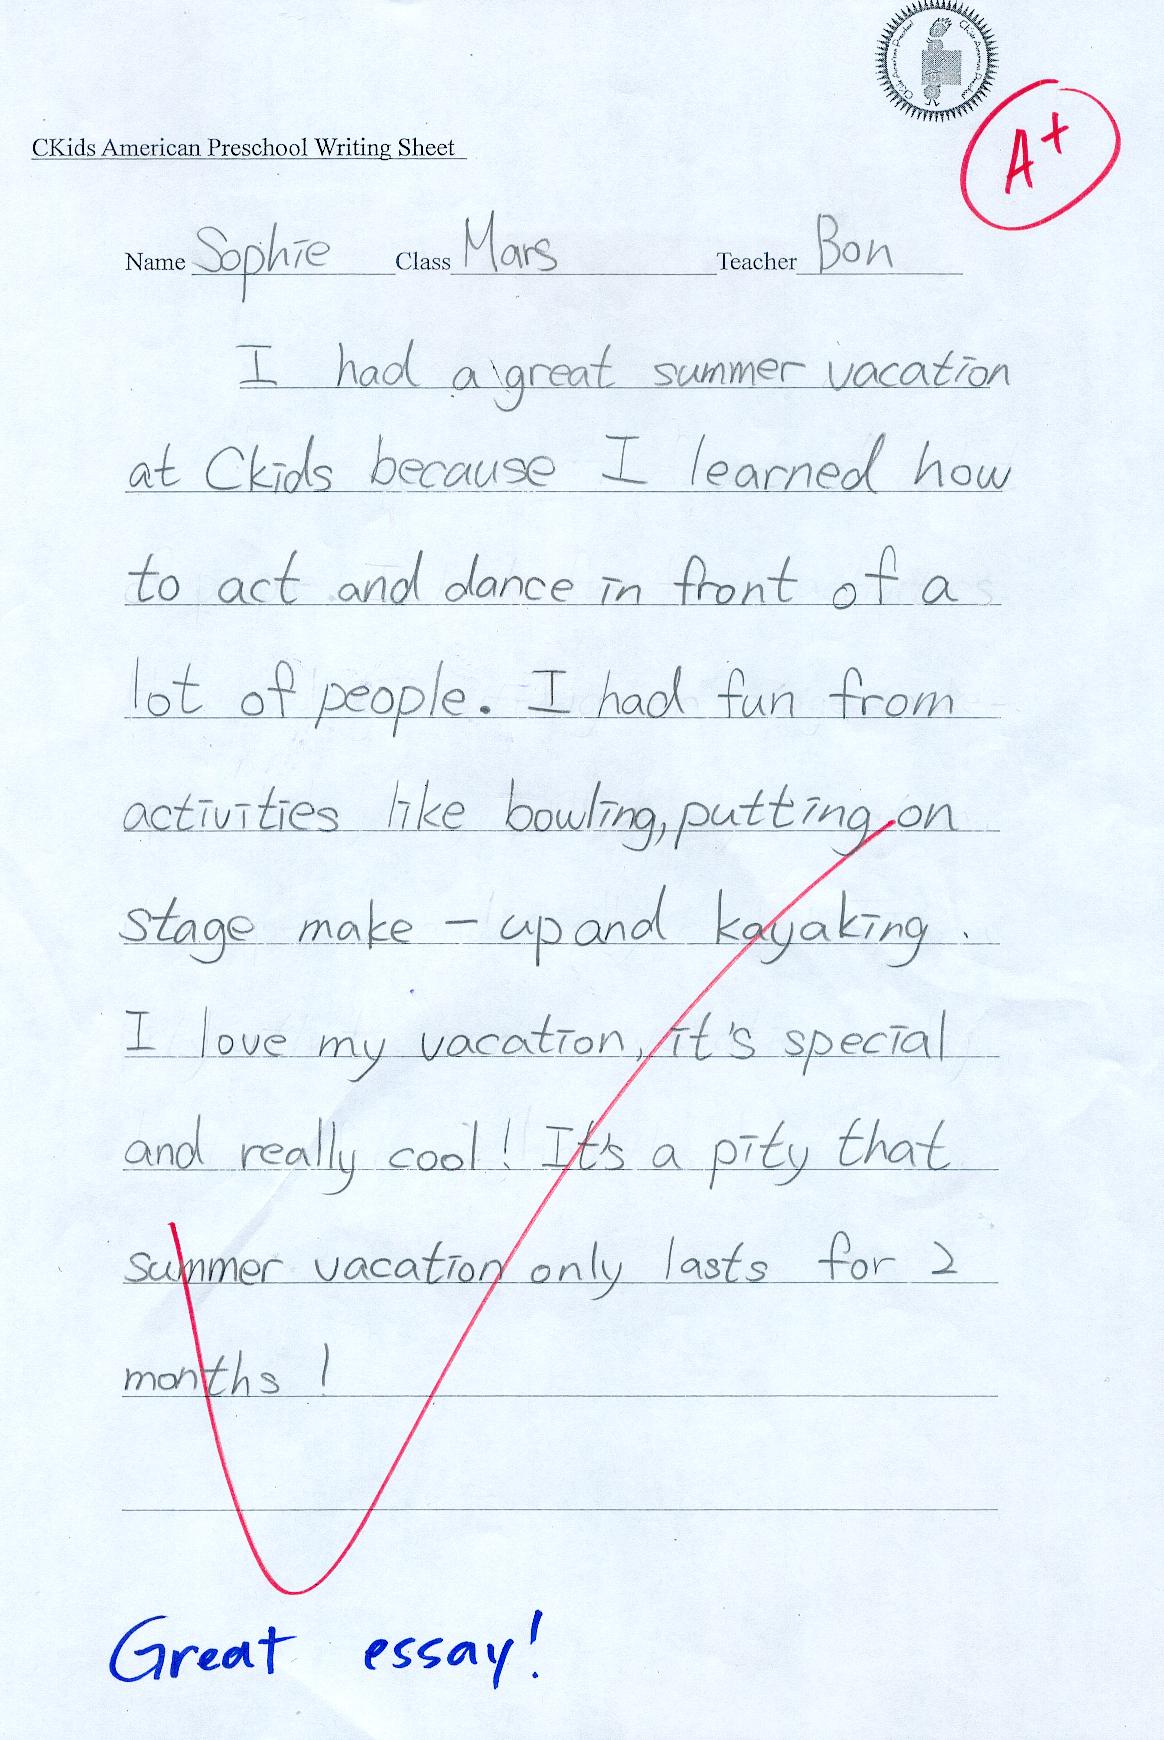 CKids American Preschool Writing Sheet
A+
Name Sophie Class Mars Teacher Bon
I had a great summer vacation
at Ckids because I learned how
to act and dance in front of a
lot of people. I had fun from
activities like bowling, putting on
stage make - up and kayaking.
I love my vacation, it's special
and really cool! It's a pity that
summer vacation only lasts for 2
months!
Great essay!